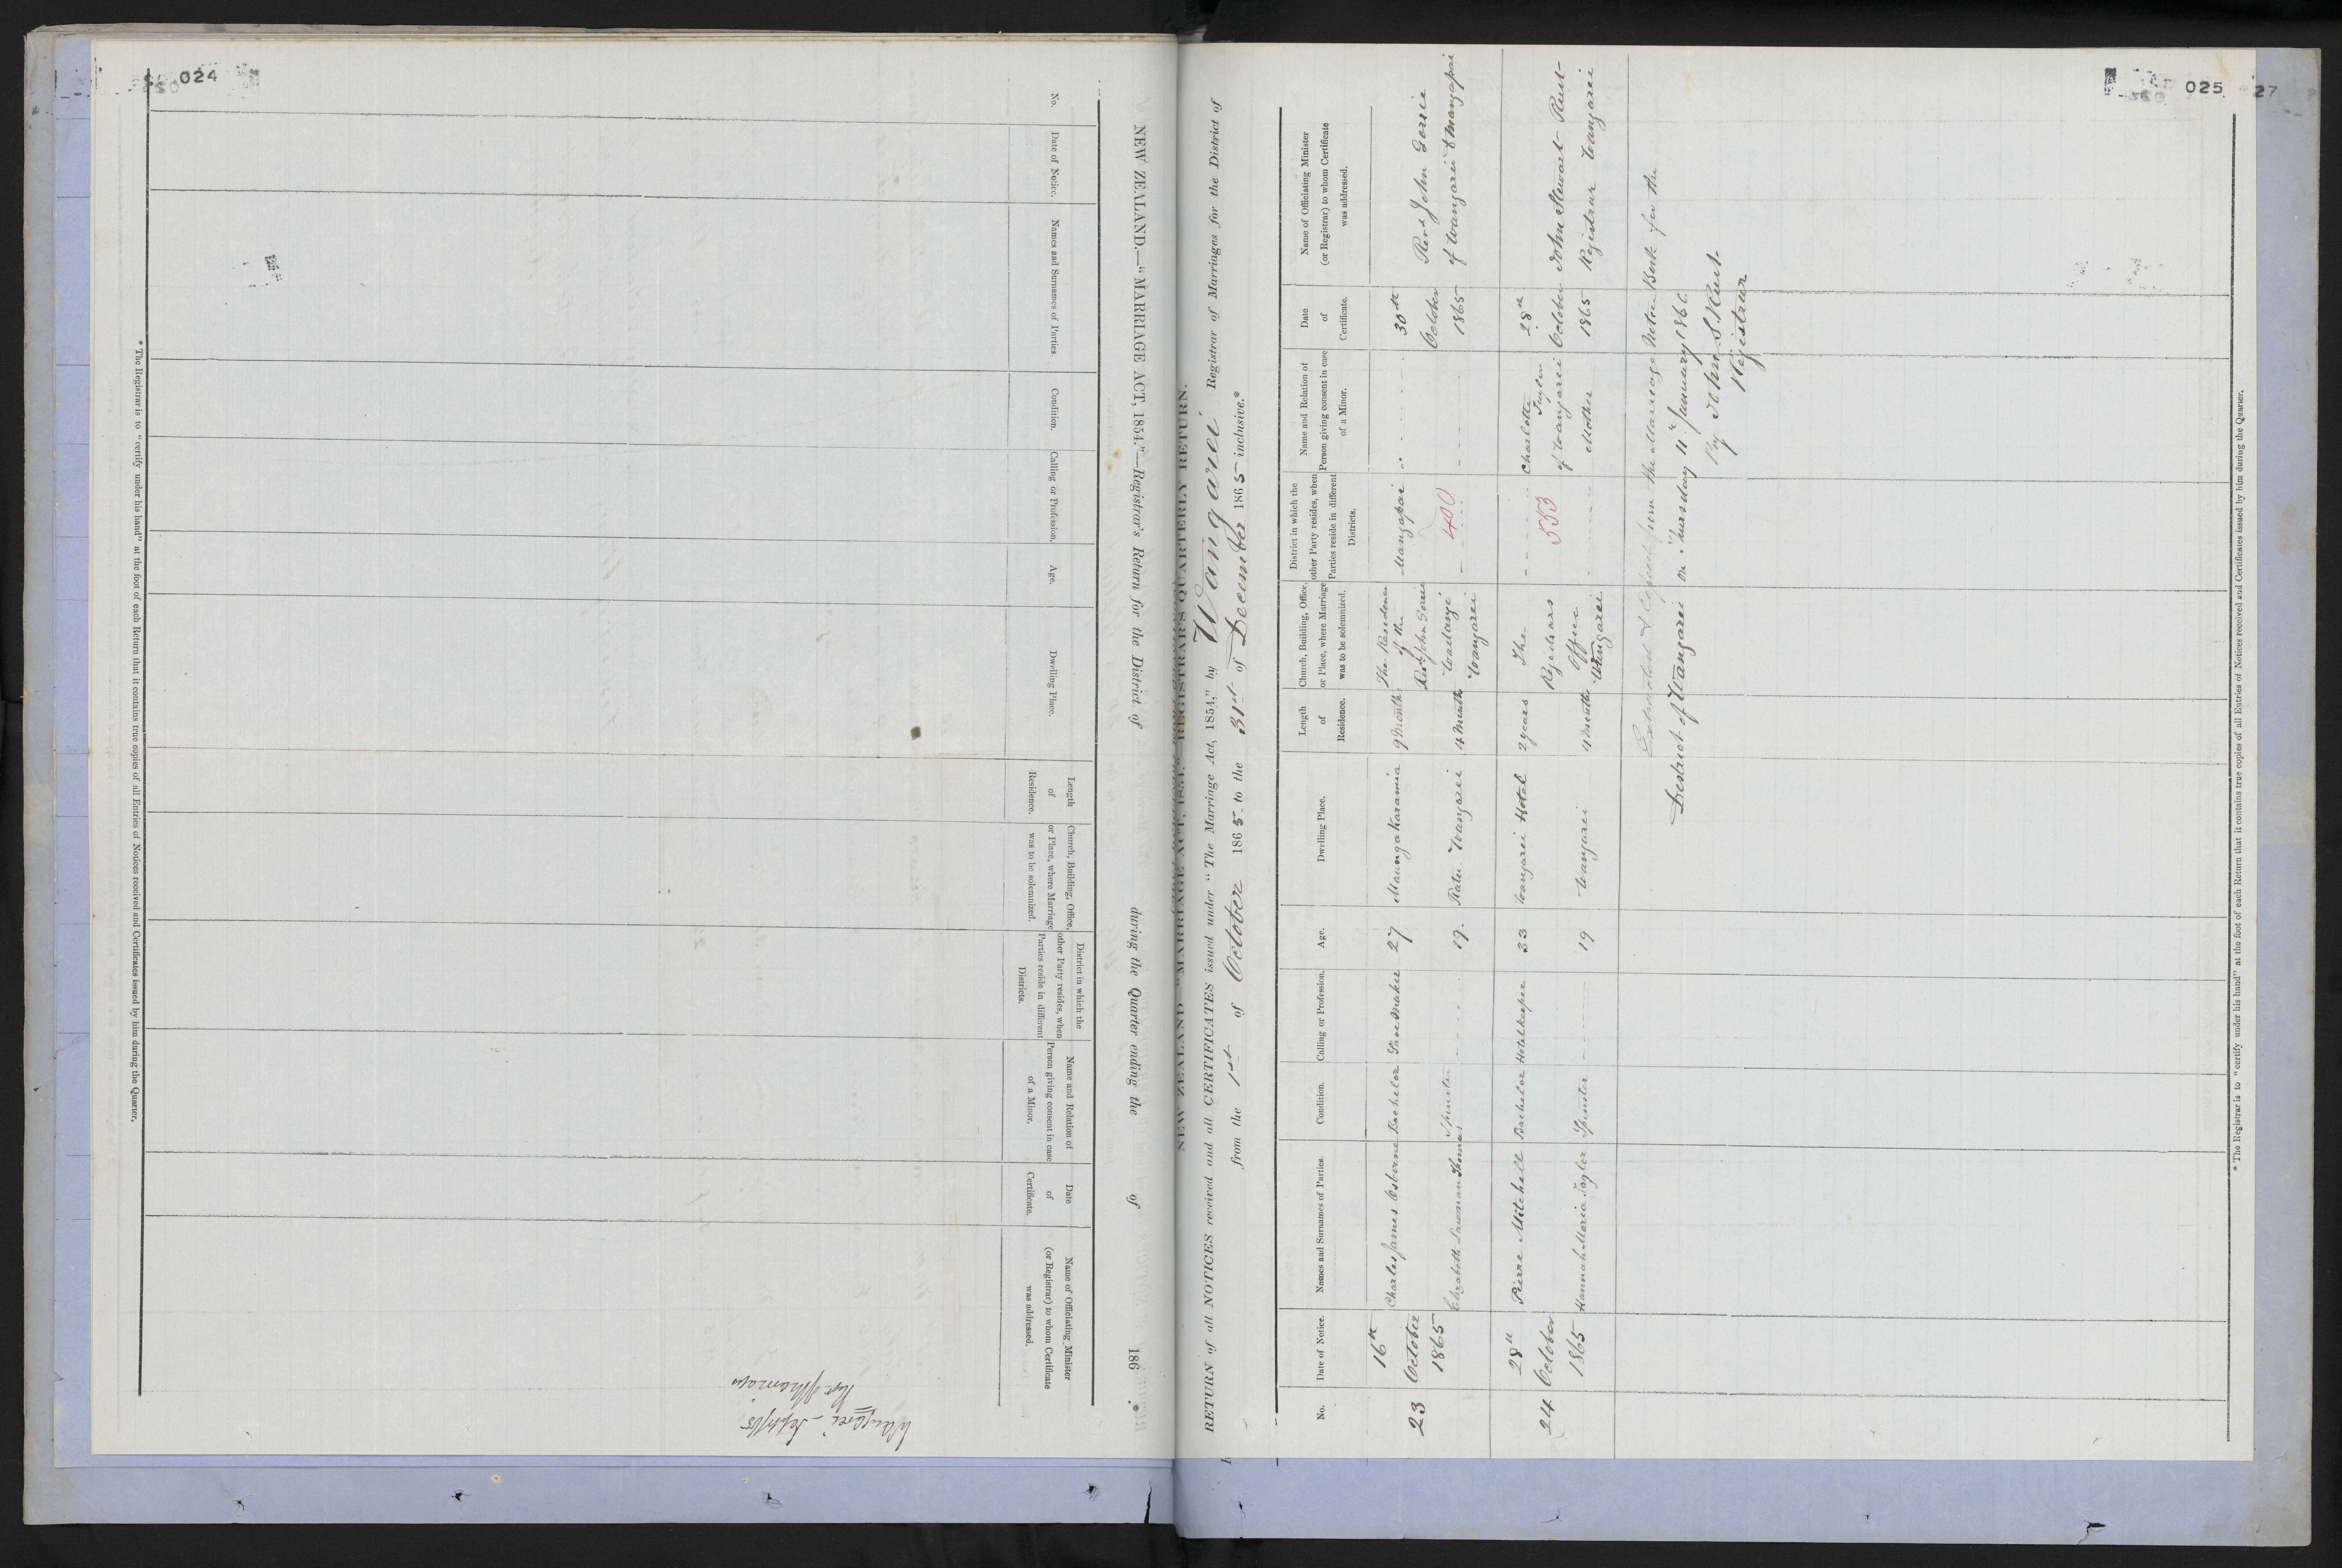 024
NEW ZEALAND.—"MARRIAGE ACT, 1854."—Registrar's Return for the District of during the Quarter ending the of 186 .*
No.
Date of Notice.
Names and Surnames of Parties.
Condition.
Calling or Profession.
Age.
Dwelling Place.
Length
of
Residence.
Church, Building, Office,
or Place, where Marriage
was to be solemnized.
District in which the
other Party resides, when
Parties reside in different
Districts.
Name and Relation of
Person giving consent in case
of a Minor.
Date
of
Certificate.
Name of Officiating Minister
(or Registrar) to whom Certificate
was addressed.
* The Registrar is to "certify under his hand" at the foot of each Return that it contains true copies of all Entries of Notices received and Certificates issued by him during the Quarter.
025
27
NEW ZEALAND "MARRIAGE ACT, 1854."—REGISTRAR'S QUARTERLY RETURN.
RETURN of all NOTICES received and all CERTIFICATES issued under "The Marriage Act, 1854," by Wangarei Registrar of Marriages for the District of
from the 1st of October 1865 to the 31st of December 1865 inclusive.*
No.
Date of Notice.
Names and Surnames of Parties.
Condition.
Calling or Profession.
Age.
Dwelling Place.
Length
of
Residence.
Church, Building, Office,
or Place, where Marriage
was to be solemnized.
District in which the
other Party resides, when
Parties reside in different
Districts.
Name and Relation of
Person giving consent in case
of a Minor.
Date
of
Certificate.
Name of Officiating Minister
(or Registrar) to whom Certificate
was addressed.
23
16th
October
1865
Charles James Osborne
Bachelor
27
Maungakaramia
9 Months
The Residence
of the
Rev John Gorrie
Wangarei
Mangapai
30th
October
1865
Rev John Gorrie
of Wangarei & Mangapai
Elizabeth Thomas
Spinster
19.
Wangarei
4 Months
400
24
28th
October
1865
Pierre Mitchell
Bachelor
Hotelkeeper
33
Wangarei Hotel
2 years
The
Registrars
Office
Wangarei
553
Charlotte
Taylor
of Wangarei
Mother
28th
October
1865
John Stewart Rust
Registrar Wangarei
Hannah Maria Taylor
Spinster
19
Wangarei
4 Months
Extracted & Copied from the Marriage Notice Book for the
District of Wangarei on Thursday 11th January 1866
By John S. Rust.
Registrar
* The Registrar is to "certify under his hand" at the foot of each Return that it contains true copies of all Entries of Notices received and Certificates issued by him during the Quarter.